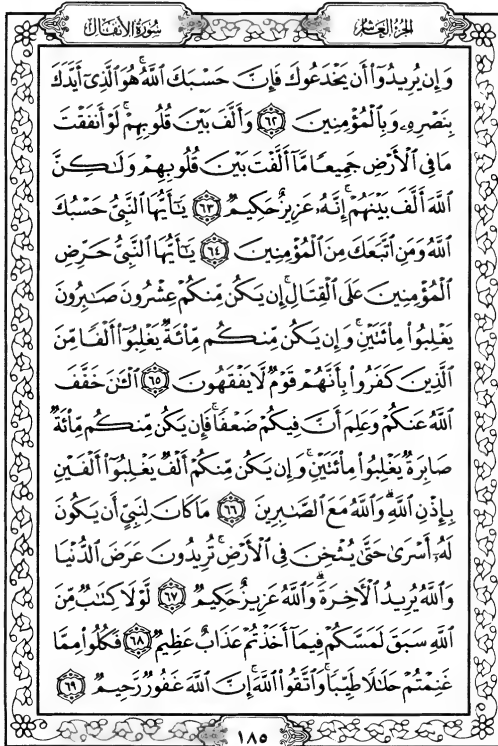 سُورَةُ الأَنفَالِ
الجُزءُ العَاشِرُ
وَإِن يُرِيدُوٓاْ أَن يَخۡدَعُوكَ فَإِنَّ حَسۡبَكَ ٱللَّهُۚ هُوَ ٱلَّذِيٓ أَيَّدَكَ
بِنَصۡرِهِۦ وَبِٱلۡمُؤۡمِنِينَ ٦٢ وَأَلَّفَ بَيۡنَ قُلُوبِهِمۡۚ لَوۡ أَنفَقۡتَ
مَا فِي ٱلۡأَرۡضِ جَمِيعٗا مَّآ أَلَّفۡتَ بَيۡنَ قُلُوبِهِمۡ وَلَٰكِنَّ
ٱللَّهَ أَلَّفَ بَيۡنَهُمۡۚ إِنَّهُۥ عَزِيزٌ حَكِيمٞ ٦٣ يَٰٓأَيُّهَا ٱلنَّبِيُّ حَسۡبُكَ
ٱللَّهُ وَمَنِ ٱتَّبَعَكَ مِنَ ٱلۡمُؤۡمِنِينَ ٦٤ يَٰٓأَيُّهَا ٱلنَّبِيُّ حَرِّضِ
ٱلۡمُؤۡمِنِينَ عَلَى ٱلۡقِتَالِۚ إِن يَكُن مِّنكُمۡ عِشۡرُونَ صَٰبِرُونَ
يَغۡلِبُواْ مِاْئَتَيۡنِۚ وَإِن يَكُن مِّنكُم مِّاْئَةٞ يَغۡلِبُوٓاْ أَلۡفٗا مِّنَ
ٱلَّذِينَ كَفَرُواْ بِأَنَّهُمۡ قَوۡمٞ لَّا يَفۡقَهُونَ ٦٥ ٱلۡـَٰٔنَ خَفَّفَ
ٱللَّهُ عَنكُمۡ وَعَلِمَ أَنَّ فِيكُمۡ ضَعۡفٗاۚ فَإِن يَكُن مِّنكُم مِّاْئَةٞ
صَابِرَةٞ يَغۡلِبُواْ مِاْئَتَيۡنِۚ وَإِن يَكُن مِّنكُمۡ أَلۡفٞ يَغۡلِبُوٓاْ أَلۡفَيۡنِ
بِإِذۡنِ ٱللَّهِۗ وَٱللَّهُ مَعَ ٱلصَّٰبِرِينَ ٦٦ مَا كَانَ لِنَبِيٍّ أَن يَكُونَ
لَهُۥٓ أَسۡرَىٰ حَتَّىٰ يُثۡخِنَ فِي ٱلۡأَرۡضِۚ تُرِيدُونَ عَرَضَ ٱلدُّنۡيَا
وَٱللَّهُ يُرِيدُ ٱلۡأٓخِرَةَۗ وَٱللَّهُ عَزِيزٌ حَكِيمٞ ٦٧ لَّوۡلَا كِتَٰبٞ مِّنَ
ٱللَّهِ سَبَقَ لَمَسَّكُمۡ فِيمَآ أَخَذۡتُمۡ عَذَابٌ عَظِيمٞ ٦٨ فَكُلُواْ مِمَّا
غَنِمۡتُمۡ حَلَٰلٗا طَيِّبٗاۚ وَٱتَّقُواْ ٱللَّهَۚ إِنَّ ٱللَّهَ غَفُورٞ رَّحِيمٞ ٦٩
١٨٥